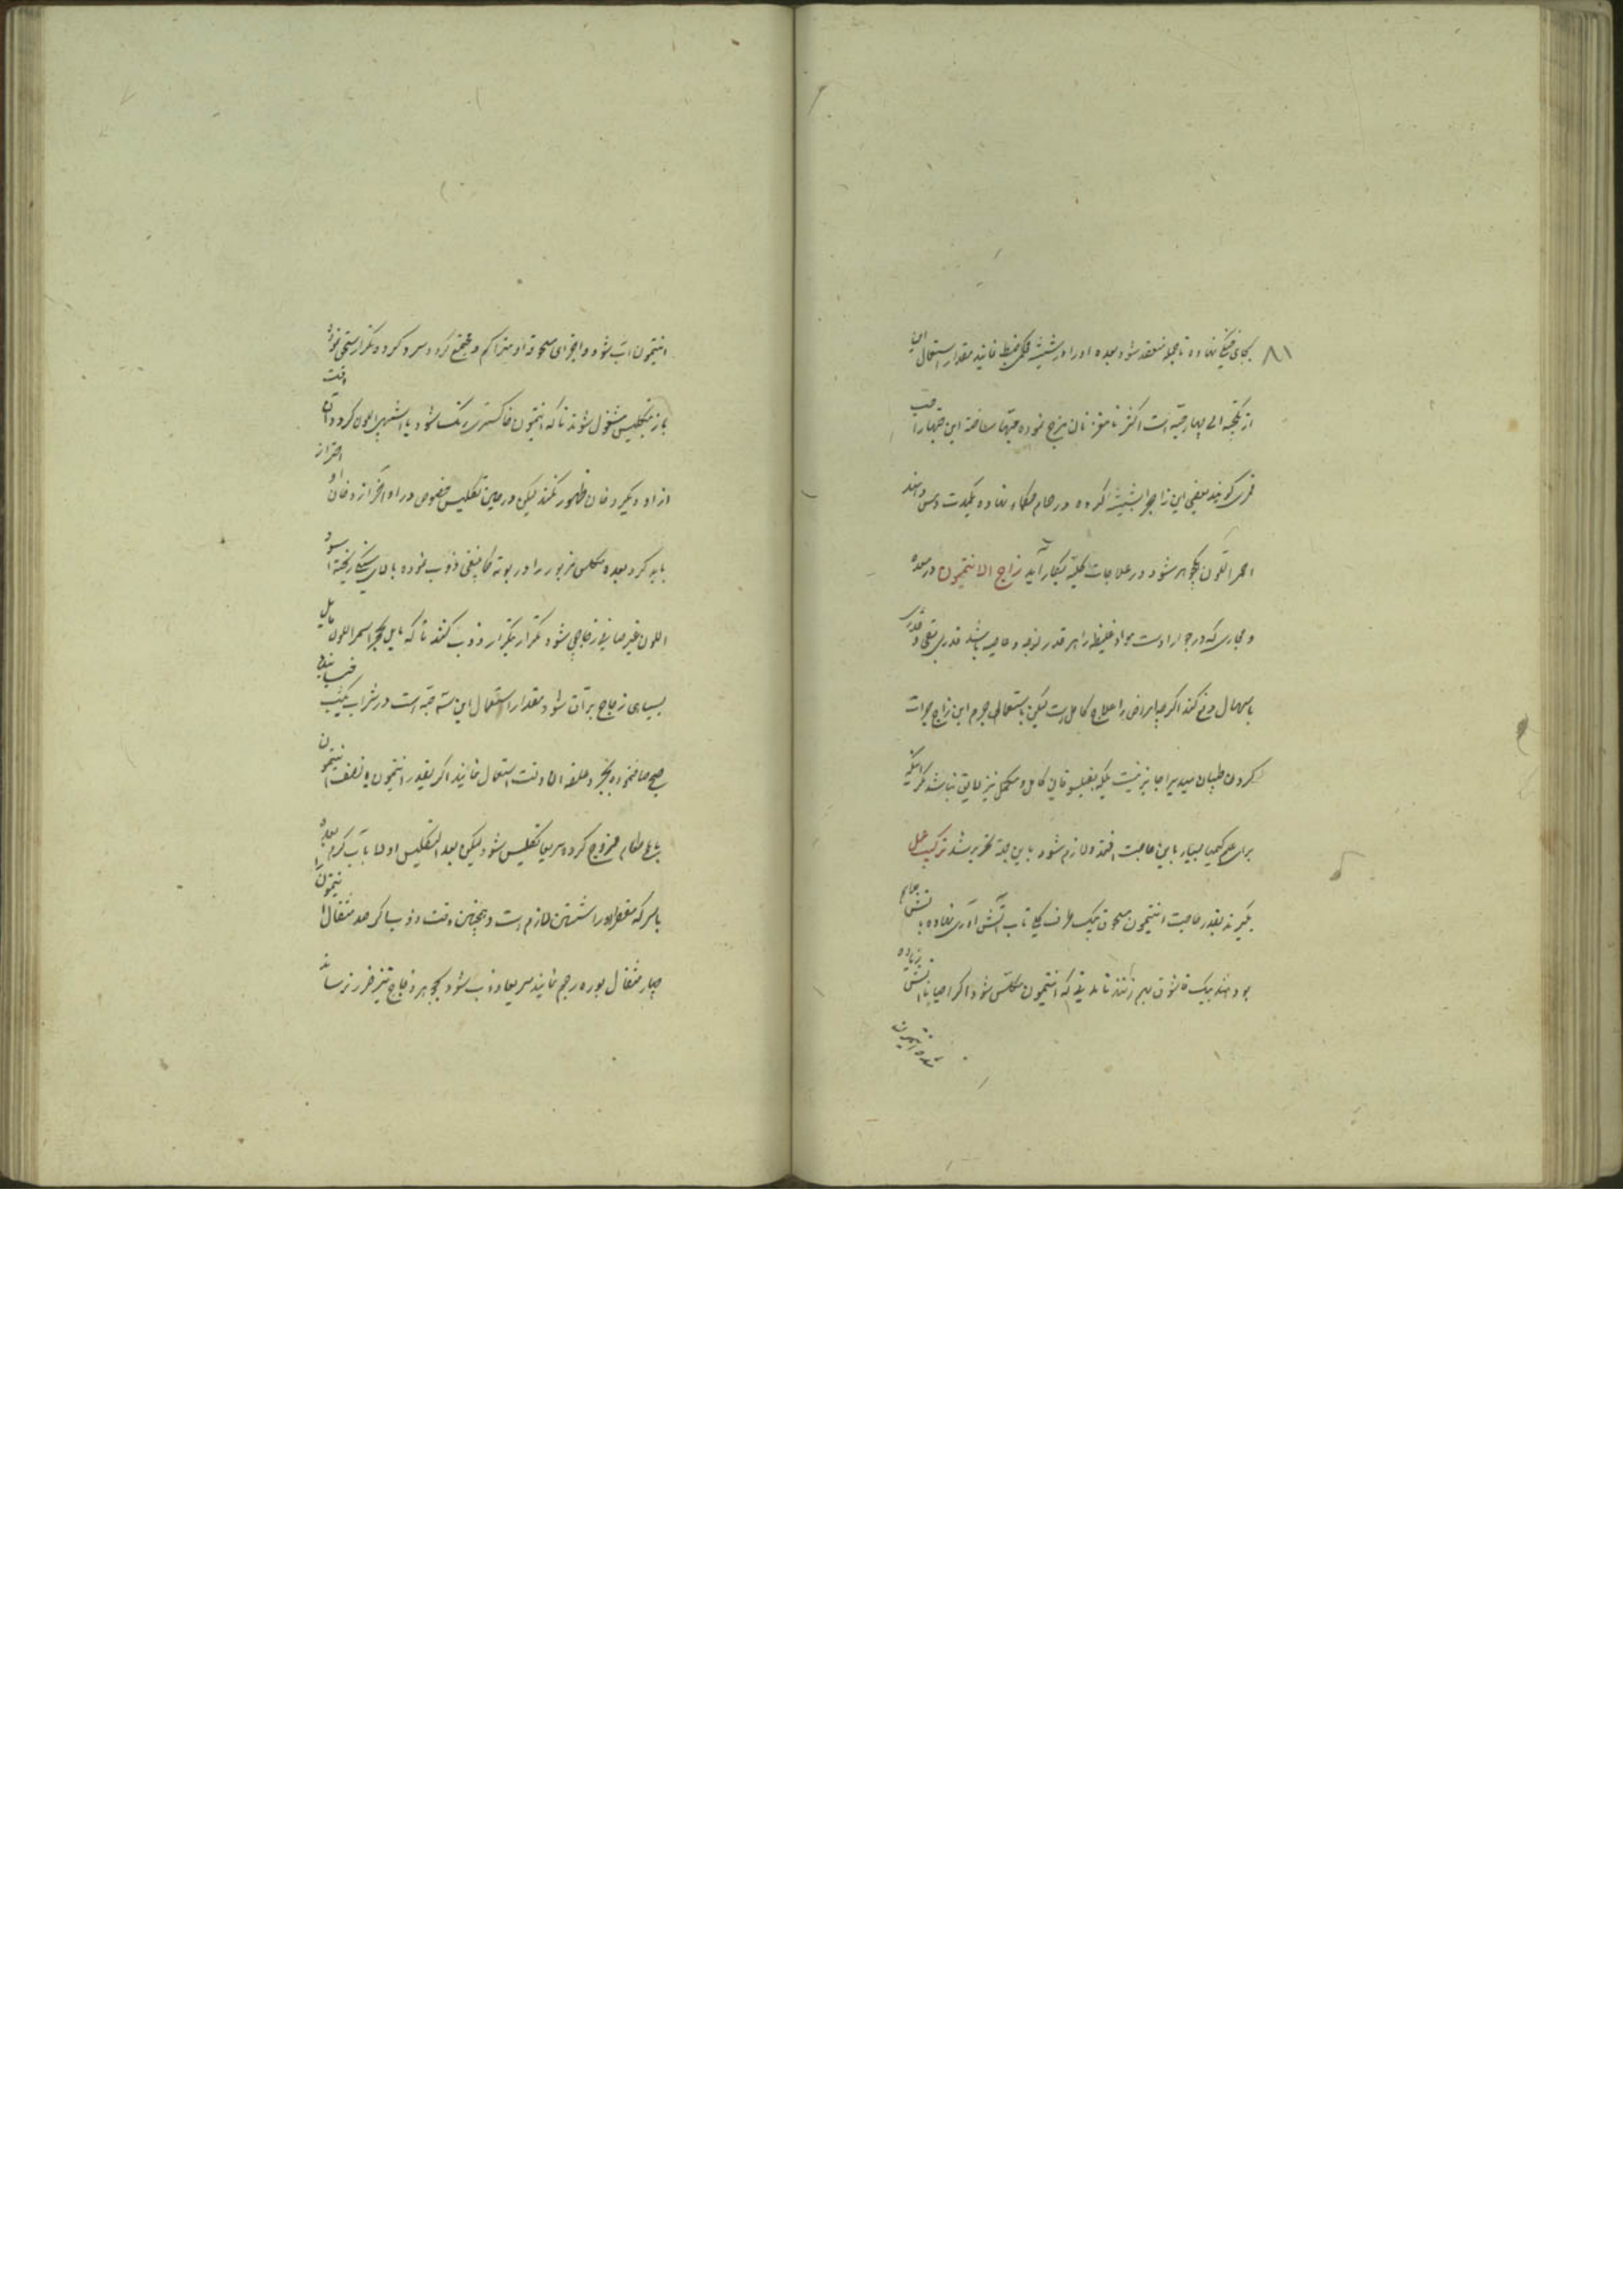 ۸۱
بجای خنک نهاده تا جمله منعقد شود بعده او را در شیشه محکم ضبط نمایند مقدار استعمال این
از یکحبه الی چهار حبه است اکثر با مغز نان مزج نموده حبها ساخته این حبها را حب
قمری گویند بعضی این زاج را بشیشه کرده در حمام حکماء نهاده یکمدت دهند
احمر اللون یکجوهر شود در علاجات کلیه بکار آید زاج الانتیمون در معده
و مجاری که در جوار اوست مواد غلیظه را هر قدر لزجه و عاصیه باشد قدری بقی و قدری
باسهال دفع کند اکثر امراض را علاج کامل است لیکن باستعمال جرم این زاج جرات
کردن طبیبان جدید را جایز نیست بلکه بفیلسوفان کامل و مکمل نیز لایق نباشد مگر اینکه
برای علم کیمیا بسیار باین حاجت افتد و لازم شود باین جهة تحریر شد ترکیب عمل
بگیرند بقدر حاجت انتیمون مسحوق بیک ظرف گلی تاب آتش آوری نهاده
بود هند بیک قاشق بهم زنند تا مدتی که انتیمون مکلس شود اگر احیانا آتش زیاده
شده انتیمون
انتیمون آب شود و اجزای مسحوقه او متراکم و مجتمع گردد سرد کرده مکرر سحق نموده
باز بتکلیس مشغول شوند تا که انتیمون خاکستری رنگ شود یا اشهب اللون گردد آن وقت
از او دیگر دخان ظهور نکند لیکن در حین تکلیس مخصوص در او از دخان او احتراز
باید کرد بعده مکلس مزبور را در بوته ذوب نموده بالای سنگی ریخته اسود
اللون غیر صافی زجاجی شود مکرر بتکرار ذوب کنند تا که مایل بحجر اسمر اللون مایل
بسیاهی زجاج براق شود مقدار استعمال این سه حبه است در شراب یکشب خیسانیده
صبح صاف نموده علی الوقت استعمال نمایند اگر بقدر انتیمون یا نصف انتیمون
ملح طعام ممزوج کرده سریعا تکلیس شود لیکن بعد التکلیس اولا بآب گرم بعده
با سرکه مقطر او را شستن لازم است و همچنین وقت ذوب اگر صد مثقال انتیمون را
چهار مثقال بوره رجم نمایند سریعا ذوب شود بجوهر زجاج نیز ضرر نرساند